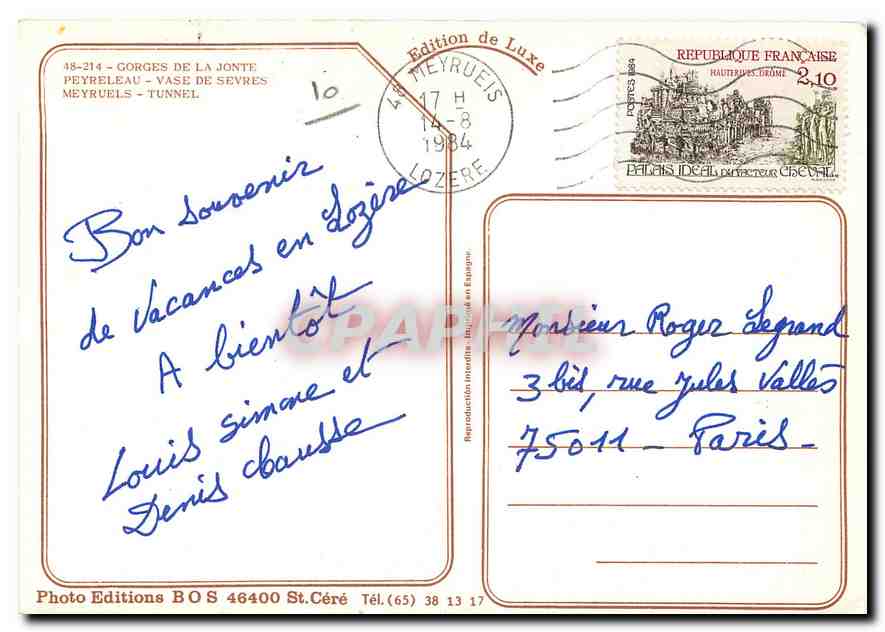 48-214 - GORGES DE LA JONTE
PEYRELEAU - VASE DE SEVRES
MEYRUELS - TUNNEL
10
Edition de Luxe
48 MEYRUEIS
17 H
14-8
1984
LOZERE
REPUBLIQUE FRANÇAISE
HAUTERIVES_DRÔME
2,10
POSTES 1984
PALAIS IDEAL DU FACTEUR CHEVAL
Bon souvenir
de vacances en Lozère
A bientôt
Louis Simone et
Denis Chausse
Reproduction interdite - Imprimé en Espagne
CPAPHIL
Monsieur Roger Legrand
3 bis, rue Jules Vallès
75011 - Paris -
Photo Editions BOS 46400 St.Céré Tél. (65) 38 13 17